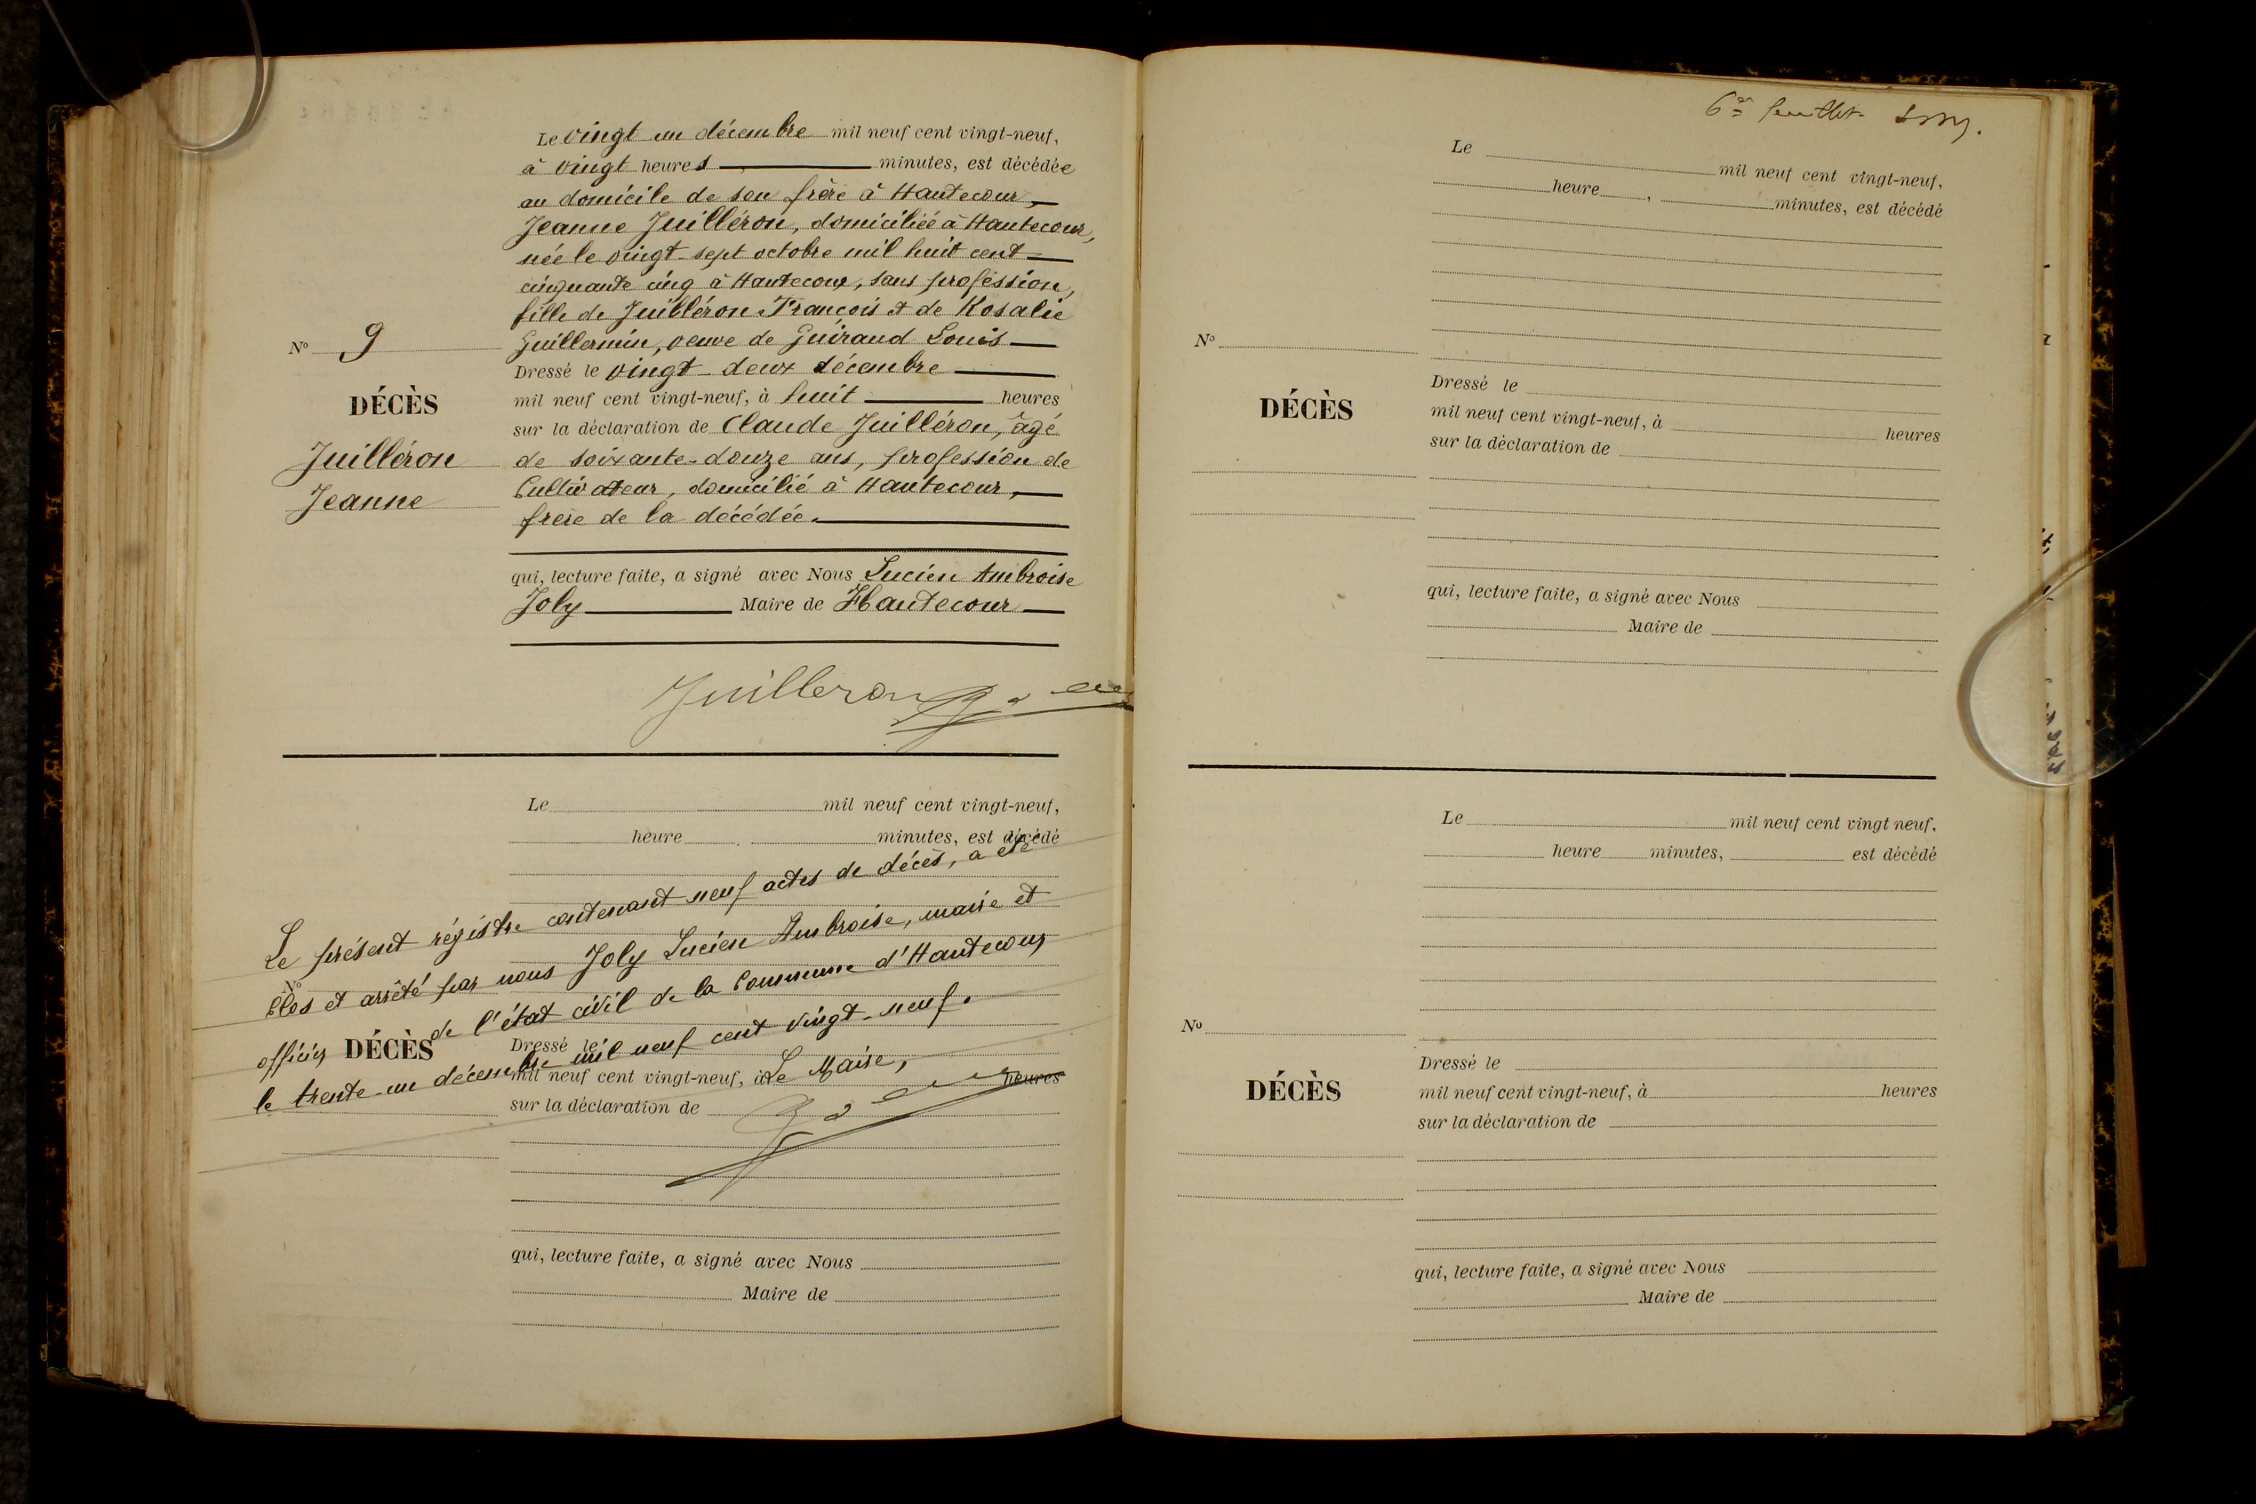 Le vingt un décembre mil neuf cent vingt-neuf,
à vingt heures minutes, est décédée
au domicile de son frère à Hautecour,
Jeanne Juilléron, domiciliée à Hautecour,
née le vingt-sept octobre mil huit cent
cinquante cinq à Hautecour, sans profession,
fille de Juilléron François et de Rosalie
Guillermin, veuve de Guiraud Louis
Dressé le vingt-deux décembre
mil neuf cent vingt-neuf, à huit heures
sur la déclaration de Claude Juilléron, âgé
de soixante-douze ans, profession de
Cultivateur, domicilié à Hautecour,
frère de la décédée.
qui, lecture faite, a signé avec Nous Lucien Ambroise
Joly Maire de Hautecour
Nº 9
DÉCÈS
Juilléron
Jeanne
Juilleron
Le mil neuf cent vingt-neuf,
heure minutes, est décédé
Le présent régistre contenant neuf actes de décès, a été
clos et arrêté par nous Joly Lucien Ambroise, maire et
officier de l'état civil de la Commune d'Hautecour
le trente-un décembre mil neuf cent vingt-neuf.
Le Maire,
Nº
DÉCÈS
Dressé le
mil neuf cent vingt-neuf, à heures
sur la déclaration de
qui, lecture faite, a signé avec Nous
Maire de
6e feuillet
Le mil neuf cent vingt-neuf,
heure , minutes, est décédé
Nº
DÉCÈS
Dressé le
mil neuf cent vingt-neuf, à heures
sur la déclaration de
qui, lecture faite, a signé avec Nous
Maire de
Le mil neuf cent vingt neuf,
heure minutes, est décédé
Nº
DÉCÈS
Dressé le
mil neuf cent vingt-neuf, à heures
sur la déclaration de
qui, lecture faite, a signé avec Nous
Maire de